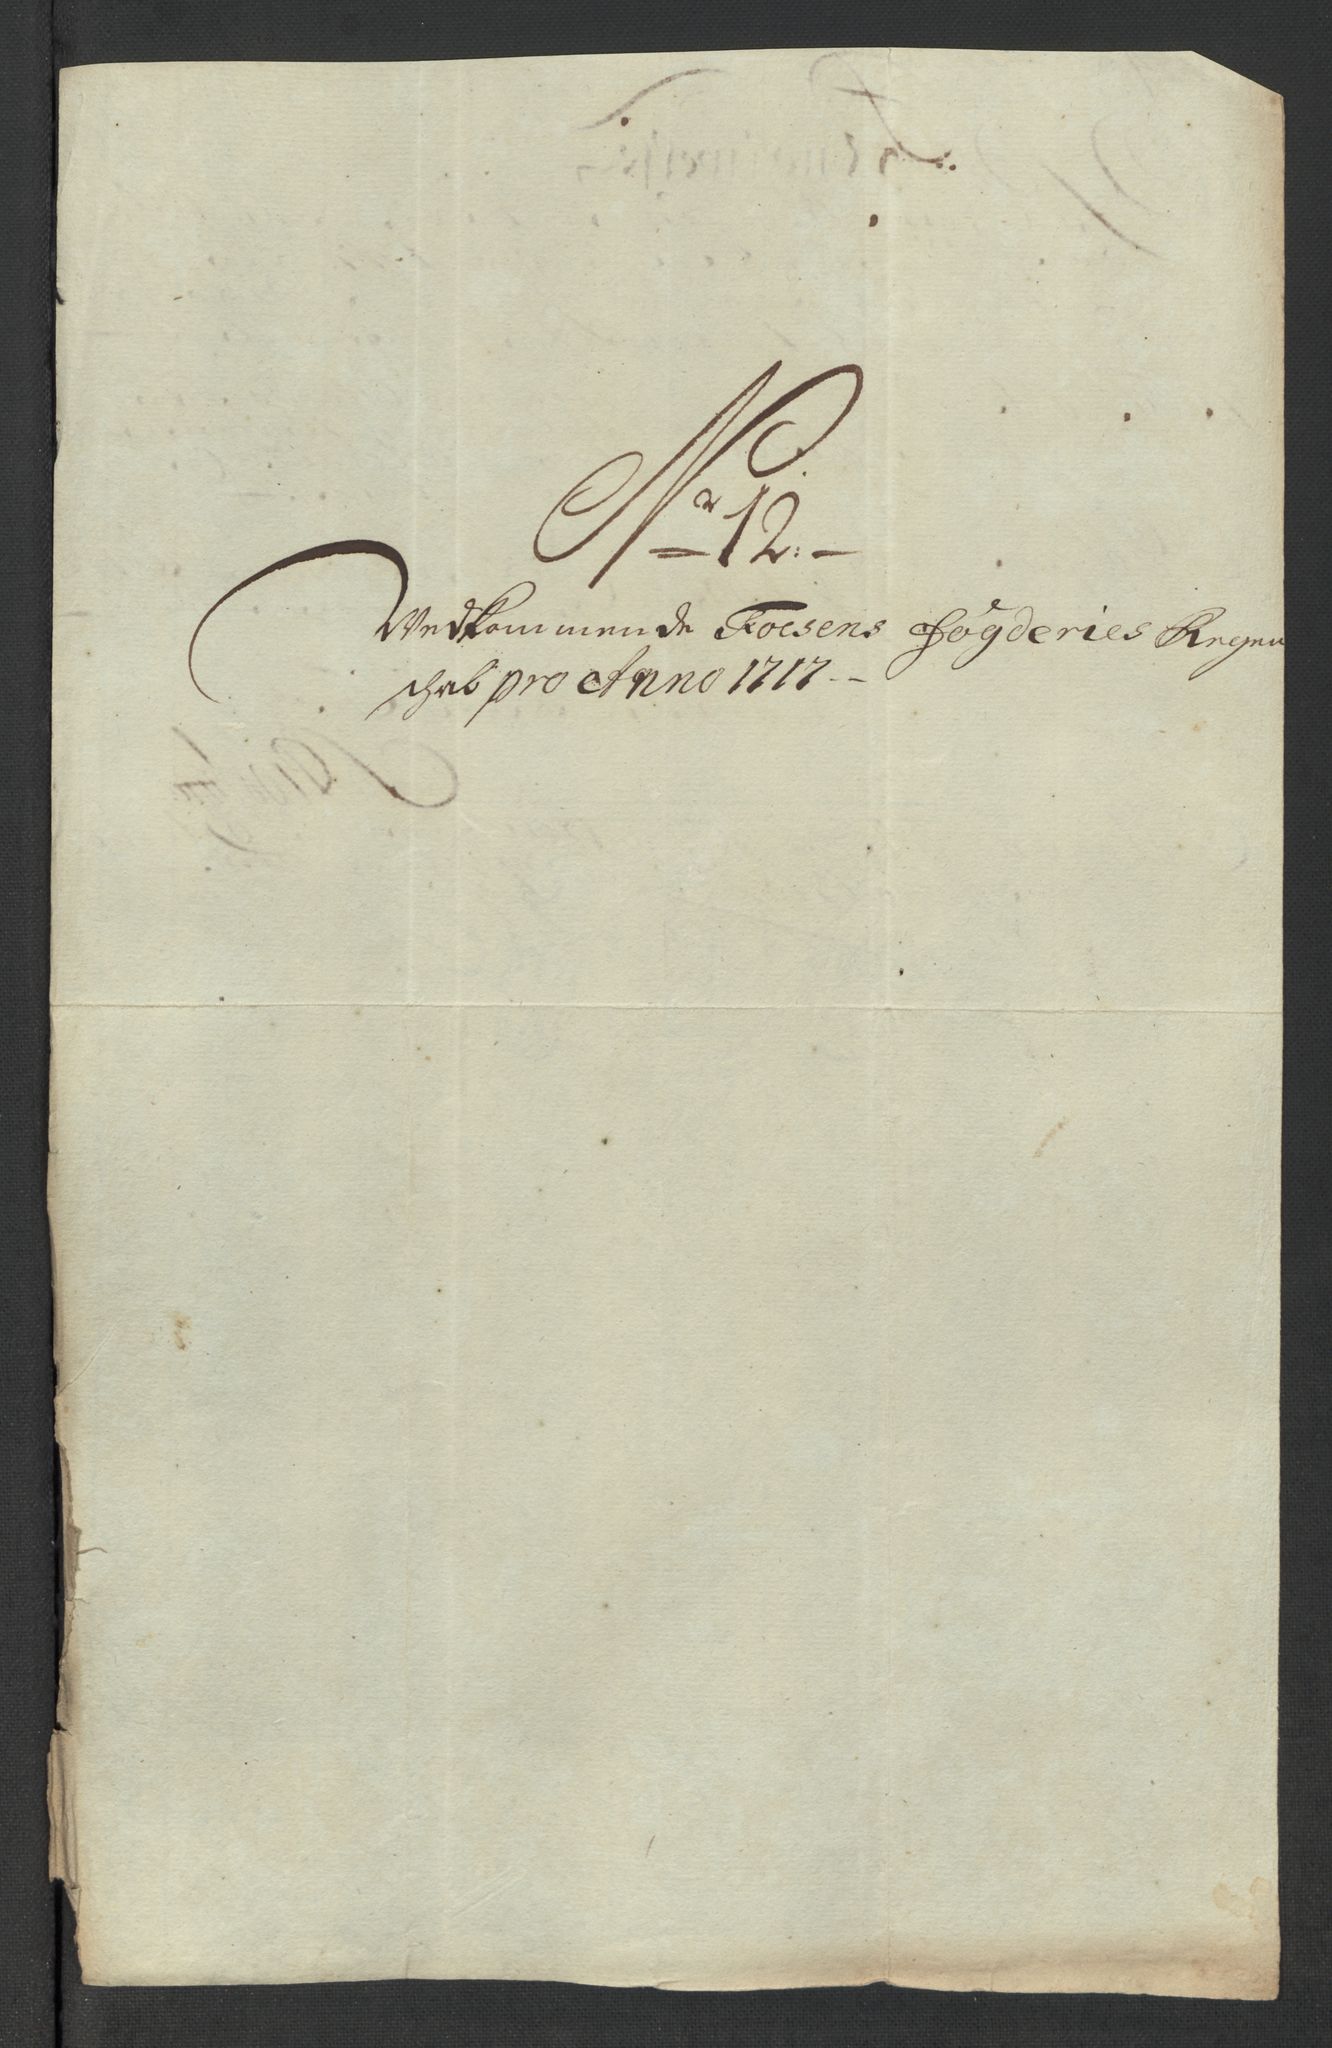 Nr 12.
Vedkommende Foesens Fogderies Regen
schab pro Anno 1717.